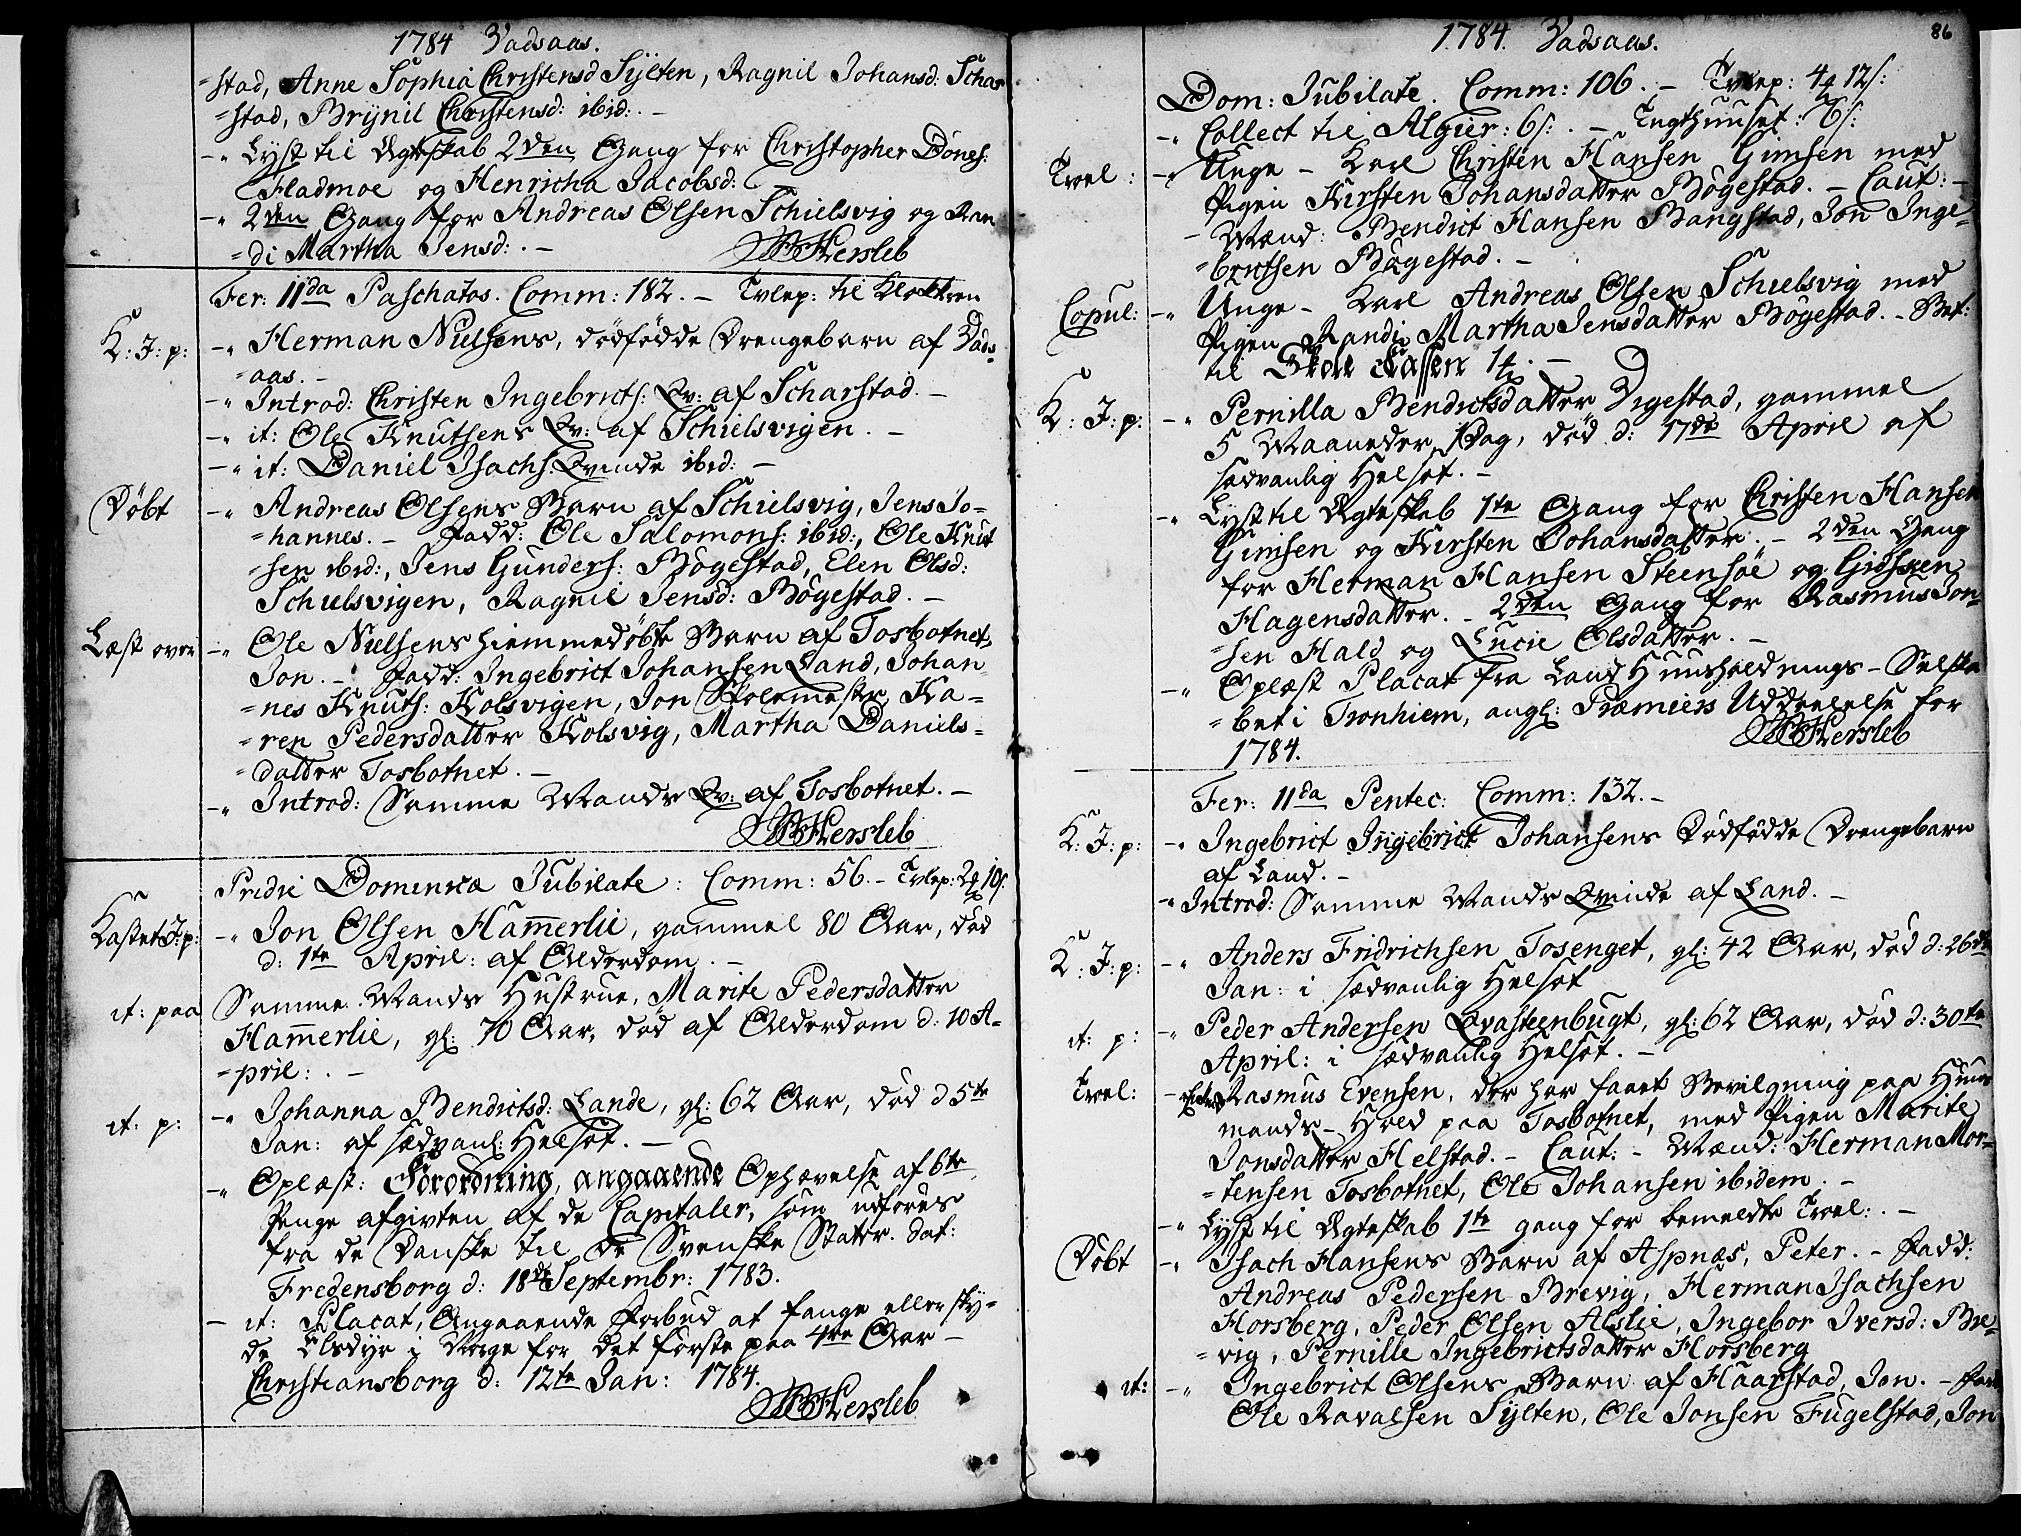 1784 Vadsaas.
=stad, Anne Sophia Christensd Sylten, Ragnil Johansd: Schar
=stad, Brynil Christensd: ibid: . –
–„ Lyst til Ægteskab 2den Gang for Christopher Dönes:
Fladmoe og Henricha Jacobsd:
–„ 2den Gang for Andreas Olsen Schielsvig og Ran
=di Martha Jensd: . – Hersleb
Fer: 11da Paschatos. Comm: 182. – Tvlep: til Klokkeren
K: J: p: –„ Herman Nielsens, dödfödde Drengebarn af Vads=
=aas. –
–„ Introd: Christen Ingebricts: Qv: af Scharstad. –
–„ it: Ole Knutsens Qv: af Schielsvigen. –
–„ it: Daniel Isachs: Qvinde ibid: –
Döbt –„ Andreas Olsens Barn af Schielsvig, Jens Jo=
=hannes. – Fadd: Ole Salomons: ibid:, Ole Knut
sen ibid:, Jens Gunders: Bögestad, Elen Olsd:
Schielsvigen, Ragnil Jensd: Bögestad. –
Læst over –„ Ole Nielsens hiemmedöbte Barn af Tosbotnet,
Jon. – Fadd: Ingebrict Johansen Land, Johan
=nes Knuts: Kolsvigen, Jon Skolemester, Ka=
=ren Pedersdatter Kolsvig, Martha Daniels=
=datter Tosbotnet. –
–„ Introd: Samme Mands Qv: af Tosbotnet. –
Hersleb
Pridie Dominica Jubilate: Comm: 56. – Tvlep: 2 10s.
Kastet J: p: –„ Jon Olsen Ham̅erlie, gammel 80 Aar, död
d: 1te April: af Alderdom. –
it: paa Samme Mands Hustrue, Marite Pedersdatter
Ham̅erlie, gl: 70 Aar, död af Alderdom d: 10 A=
=pril: . –
it: p: –„ Johanna Bendictsd: Lande, gl: 62 Aar, död d 5te
Jan: af sædvanl: Helsot. –
–„ Oplæst: Forordning, angaaende Ophævelse af 6te
Penge afgivten af de Capitaler, som udföres
fra de Danske til de Svenske Stater. dat:
Fredensborg d: 18de Septembr: 1783.
– it: Placat, Angaaende Forbud at fange eller sky=
de Elsdyr i Norge for det förste paa 4re Aar –
Christiansborg d: 12te Jan: 1784.
Hersleb
1784. Vadsaas. 86
Dom: Jubilate. Comm: 106. – Tvlep: 4 12s:
–„ Collect til Algier: 6s: . – Tugthuuset: 6s:
Trol: –„ Unge – Karl Christen Hansen Gimsen med
Pigen Kirsten Johansdatter Bögestad. – Caut: –
– Mænd: Bendict Hansen Bangstad, Jon Inge=
=brictsen Bögestad. –
Copul: –„ Unge – Karl Andreas Olsen Schielsvig med
Pigen Randi Martha Jensdatter Bögestad. – Bet:
til Skole Cassen 1 . –
K: J: p: –„ Pernilla Bendictsdatter Digestad, gammel
5 Maaneder 1 Dag, död d: 17de April af
sædvanlig Helsot. –
–„ Lyst til Ægteskab 1te Gang for Christen Hansen
Gimsen og Kirsten Johansdatter. – 2den Gang
for Herman Hansen Steensöe og Gidsken
Hagensdatter. – 2den Gang for Rasmus Jon=
=sen Hald og Lucie Olsdatter. –
–„ Oplæst Placat fra Land Huusholdnings – Selska
=bet i Tronhiem, angl: Præmiers Uddeelelse for
1784. Hersleb
Fer: 11da Pentec: Comm: 132. –
K: J: p: –„ Ingebrict Ingebrict Johansens Dödfödde Drengebarn
af Land. –
–„ Introd: Samme Mands Qvinde af Land. –
K: J: p: –„ Anders Fridrichsen Tosenget, gl: 42 Aar, död d: 26de
Jan: i sædvanlig Helsot
it: p: –„ Peder Andersen Qvasteenbugt, gl: 62 Aar, död d: 30te
April: i sædvanlig Helsot. –
Trol: –„ Rasmus Evensen, der har faaet Bevilgning paa Huus
mands – Hold paa Tosbotnet, med Pigen Marite
Jonsdatter Helstad. – Caut: – Mænd: Herman Mor=
=tensen Tosbotnet, Ole Johansen ibidem. –
–„ Lyst til Ægteskab 1te gang for bemeldte Trol: . –
Döbt –„ Isach Hansens Barn af Aspnæs, Peter. – Fadd:
Andreas Pedersen Brevig, Herman Isachsen
Horsberg, Peder Olsen Alslie, Ingebor Iversd: Bre=
=vig, Pernille Ingebrictsdatter Horsberg
it: –„ Ingebrict Olsens Barn af Haarstad, Jon. – Fadd
Ole Ravalsen Sylten, Ole Jonsen Fugelstad, Jon